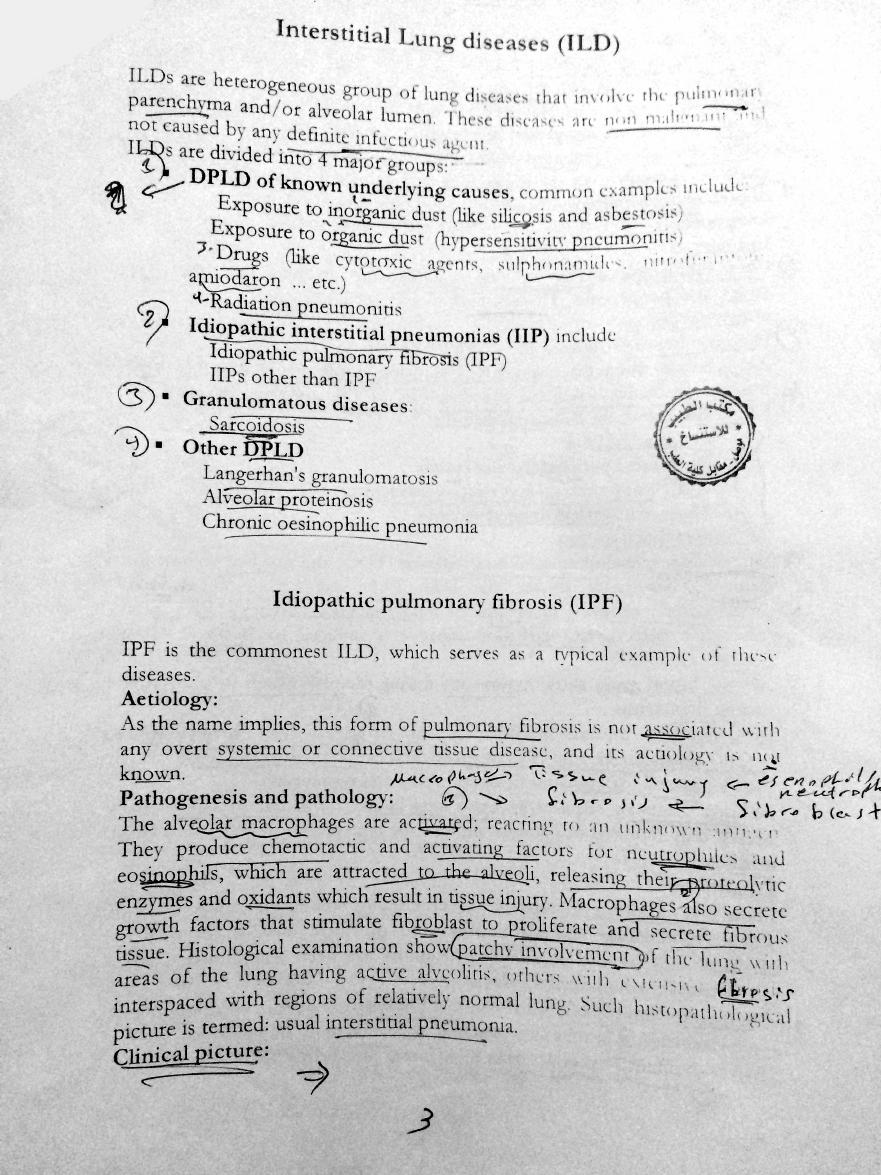 Interstitial Lung diseases (ILD)
ILDs are heterogeneous group of lung diseases that involve the pulmonary
parenchyma and/or alveolar lumen. These diseases are non malignant and
not caused by any definite infectious agent.
ILDs are divided into 4 major groups:
1
▪ DPLD of known underlying causes, common examples include:
Exposure to inorganic dust (like silicosis and asbestosis)
Exposure to organic dust (hypersensitivity pneumonitis)
3- Drugs (like cytotoxic agents, sulphonamides,
amiodaron ... etc.)
4- Radiation pneumonitis
2 ▪ Idiopathic interstitial pneumonias (IIP) include
Idiopathic pulmonary fibrosis (IPF)
IIPs other than IPF
3 ▪ Granulomatous diseases:
Sarcoidosis
4 ▪ Other DPLD
Langerhan's granulomatosis
Alveolar proteinosis
Chronic oesinophilic pneumonia
مكتب الطبيب
للاستنساخ
موصل - مقابل كلية الطب
Idiopathic pulmonary fibrosis (IPF)
IPF is the commonest ILD, which serves as a typical example of these
diseases.
Aetiology:
As the name implies, this form of pulmonary fibrosis is not associated with
any overt systemic or connective tissue disease, and its aetiology is not
known.
Macrophages → Tissue injury ←
Pathogenesis and pathology: → fibrosis ← fibroblast
The alveolar macrophages are activated; reacting to an unknown antigen
They produce chemotactic and activating factors for neutrophiles and
eosinophils, which are attracted to the alveoli, releasing their proteolytic
enzymes and oxidants which result in tissue injury. Macrophages also secrete
growth factors that stimulate fibroblast to proliferate and secrete fibrous
tissue. Histological examination show patchy involvement of the lung with
areas of the lung having active alveolitis, others with extensive fibrosis
interspaced with regions of relatively normal lung. Such histopathological
picture is termed: usual interstitial pneumonia.
Clinical picture:
→
3